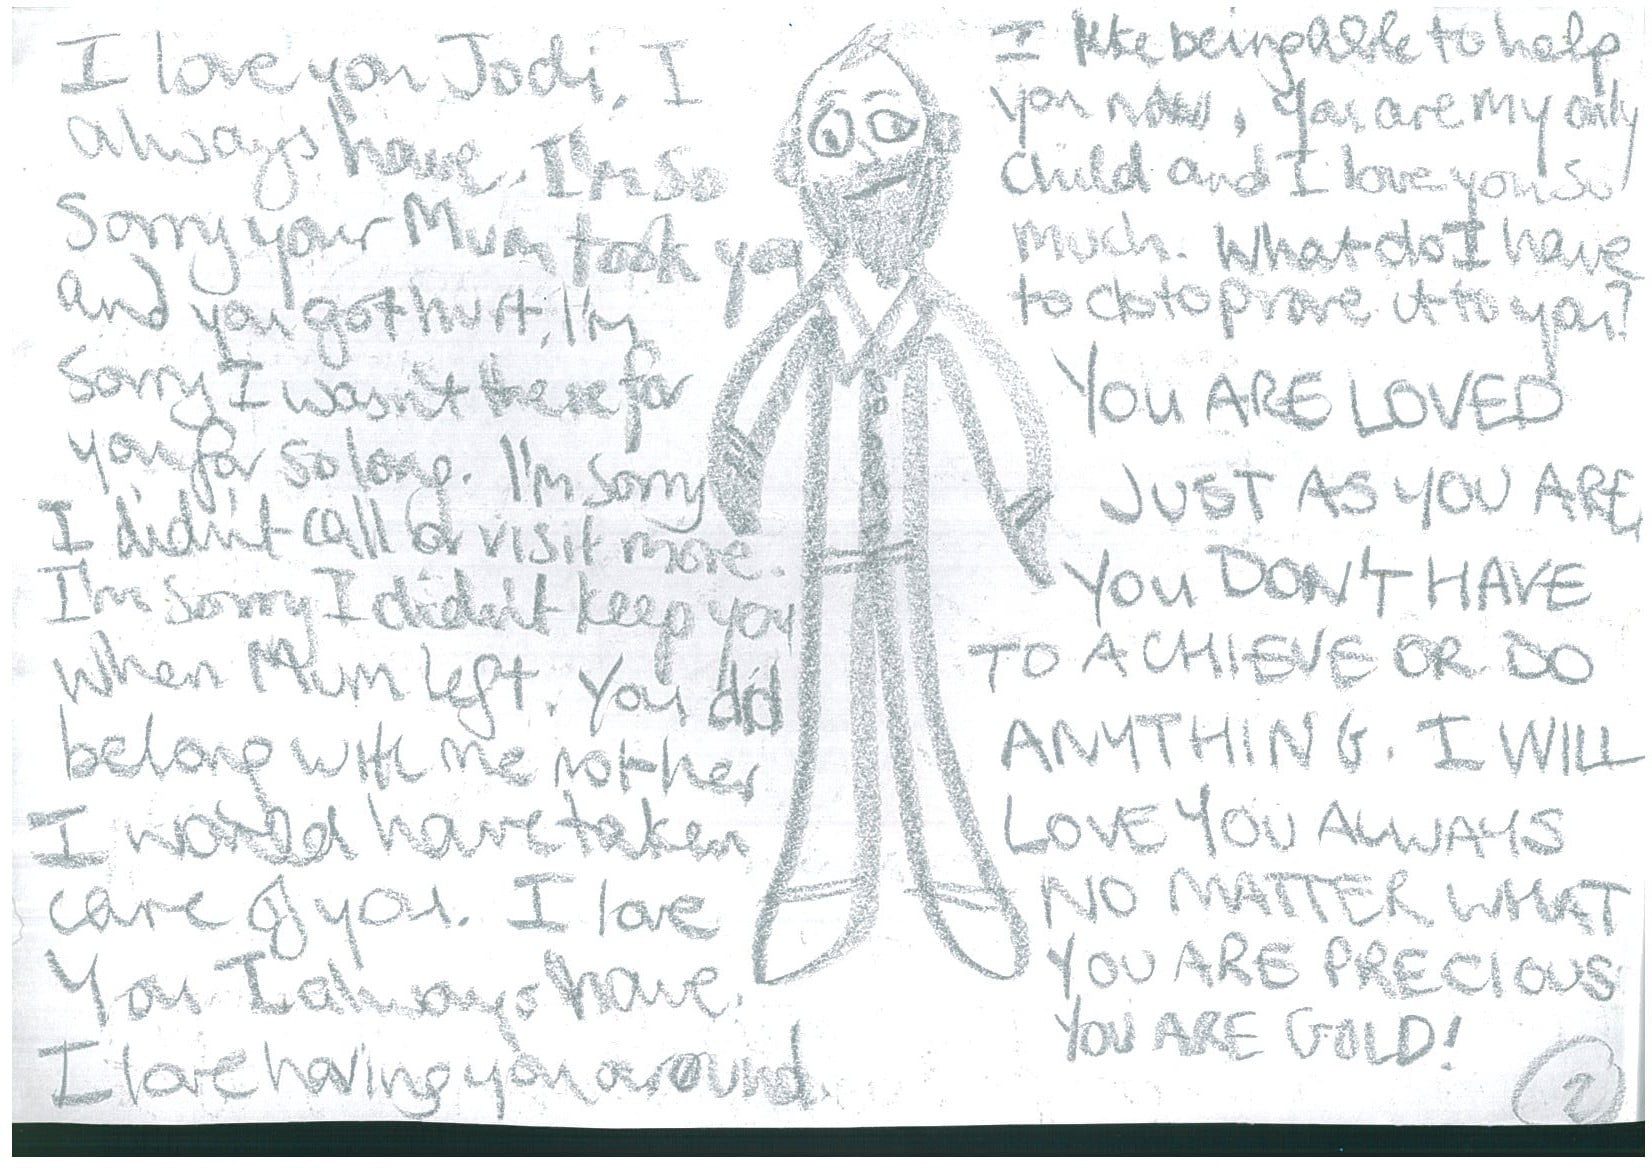 I love you Jodi, I
always have. I'm so
Sorry your Mum took you
and you got hurt, I'm
Sorry I wasn't there for
you for so long. I'm sorry
I didn't call or visit more.
I'm sorry I didn't keep you
when Mum left. You did
belong with me not her
I would have taken
care of you. I love
You I always have.
I love having you around.
I like being able to help
you now, You are my only
Child and I love you so
much. What do I have
to do to prove it to you?
YOU ARE LOVED
JUST AS YOU ARE,
YOU DON'T HAVE
TO ACHIEVE OR DO
ANYTHING. I WILL
LOVE YOU ALWAYS
NO MATTER WHAT
YOU ARE PRECIOUS
YOU ARE GOLD!
2